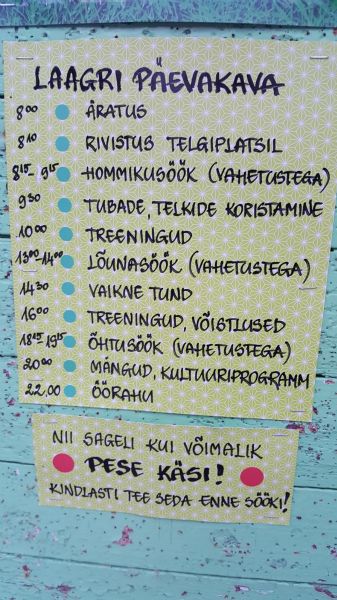 LAAGRI PÄEVAKAVA
8⁰⁰ ÄRATUS
8¹⁰ RIVISTUS TELGIPLATSIL
8¹⁵-9¹⁵ HOMMIKUSÖÖK (VAHETUSTEGA)
9³⁰ TUBADE, TELKIDE KORISTAMINE
10⁰⁰ TREENINGUD
13⁰⁰-14⁰⁰ LÕUNASÖÖK (VAHETUSTEGA)
14³⁰ VAIKNE TUND
16⁰⁰ TREENINGUD, VÕISTLUSED
18¹⁵-19¹⁵ ÕHTUSÖÖK (VAHETUSTEGA)
20⁰⁰ MÄNGUD, KULTUURIPROGRAMM
22.00 ÖÖRAHU
NII SAGELI KUI VÕIMALIK
PESE KÄSI!
KINDLASTI TEE SEDA ENNE SÖÖKI!